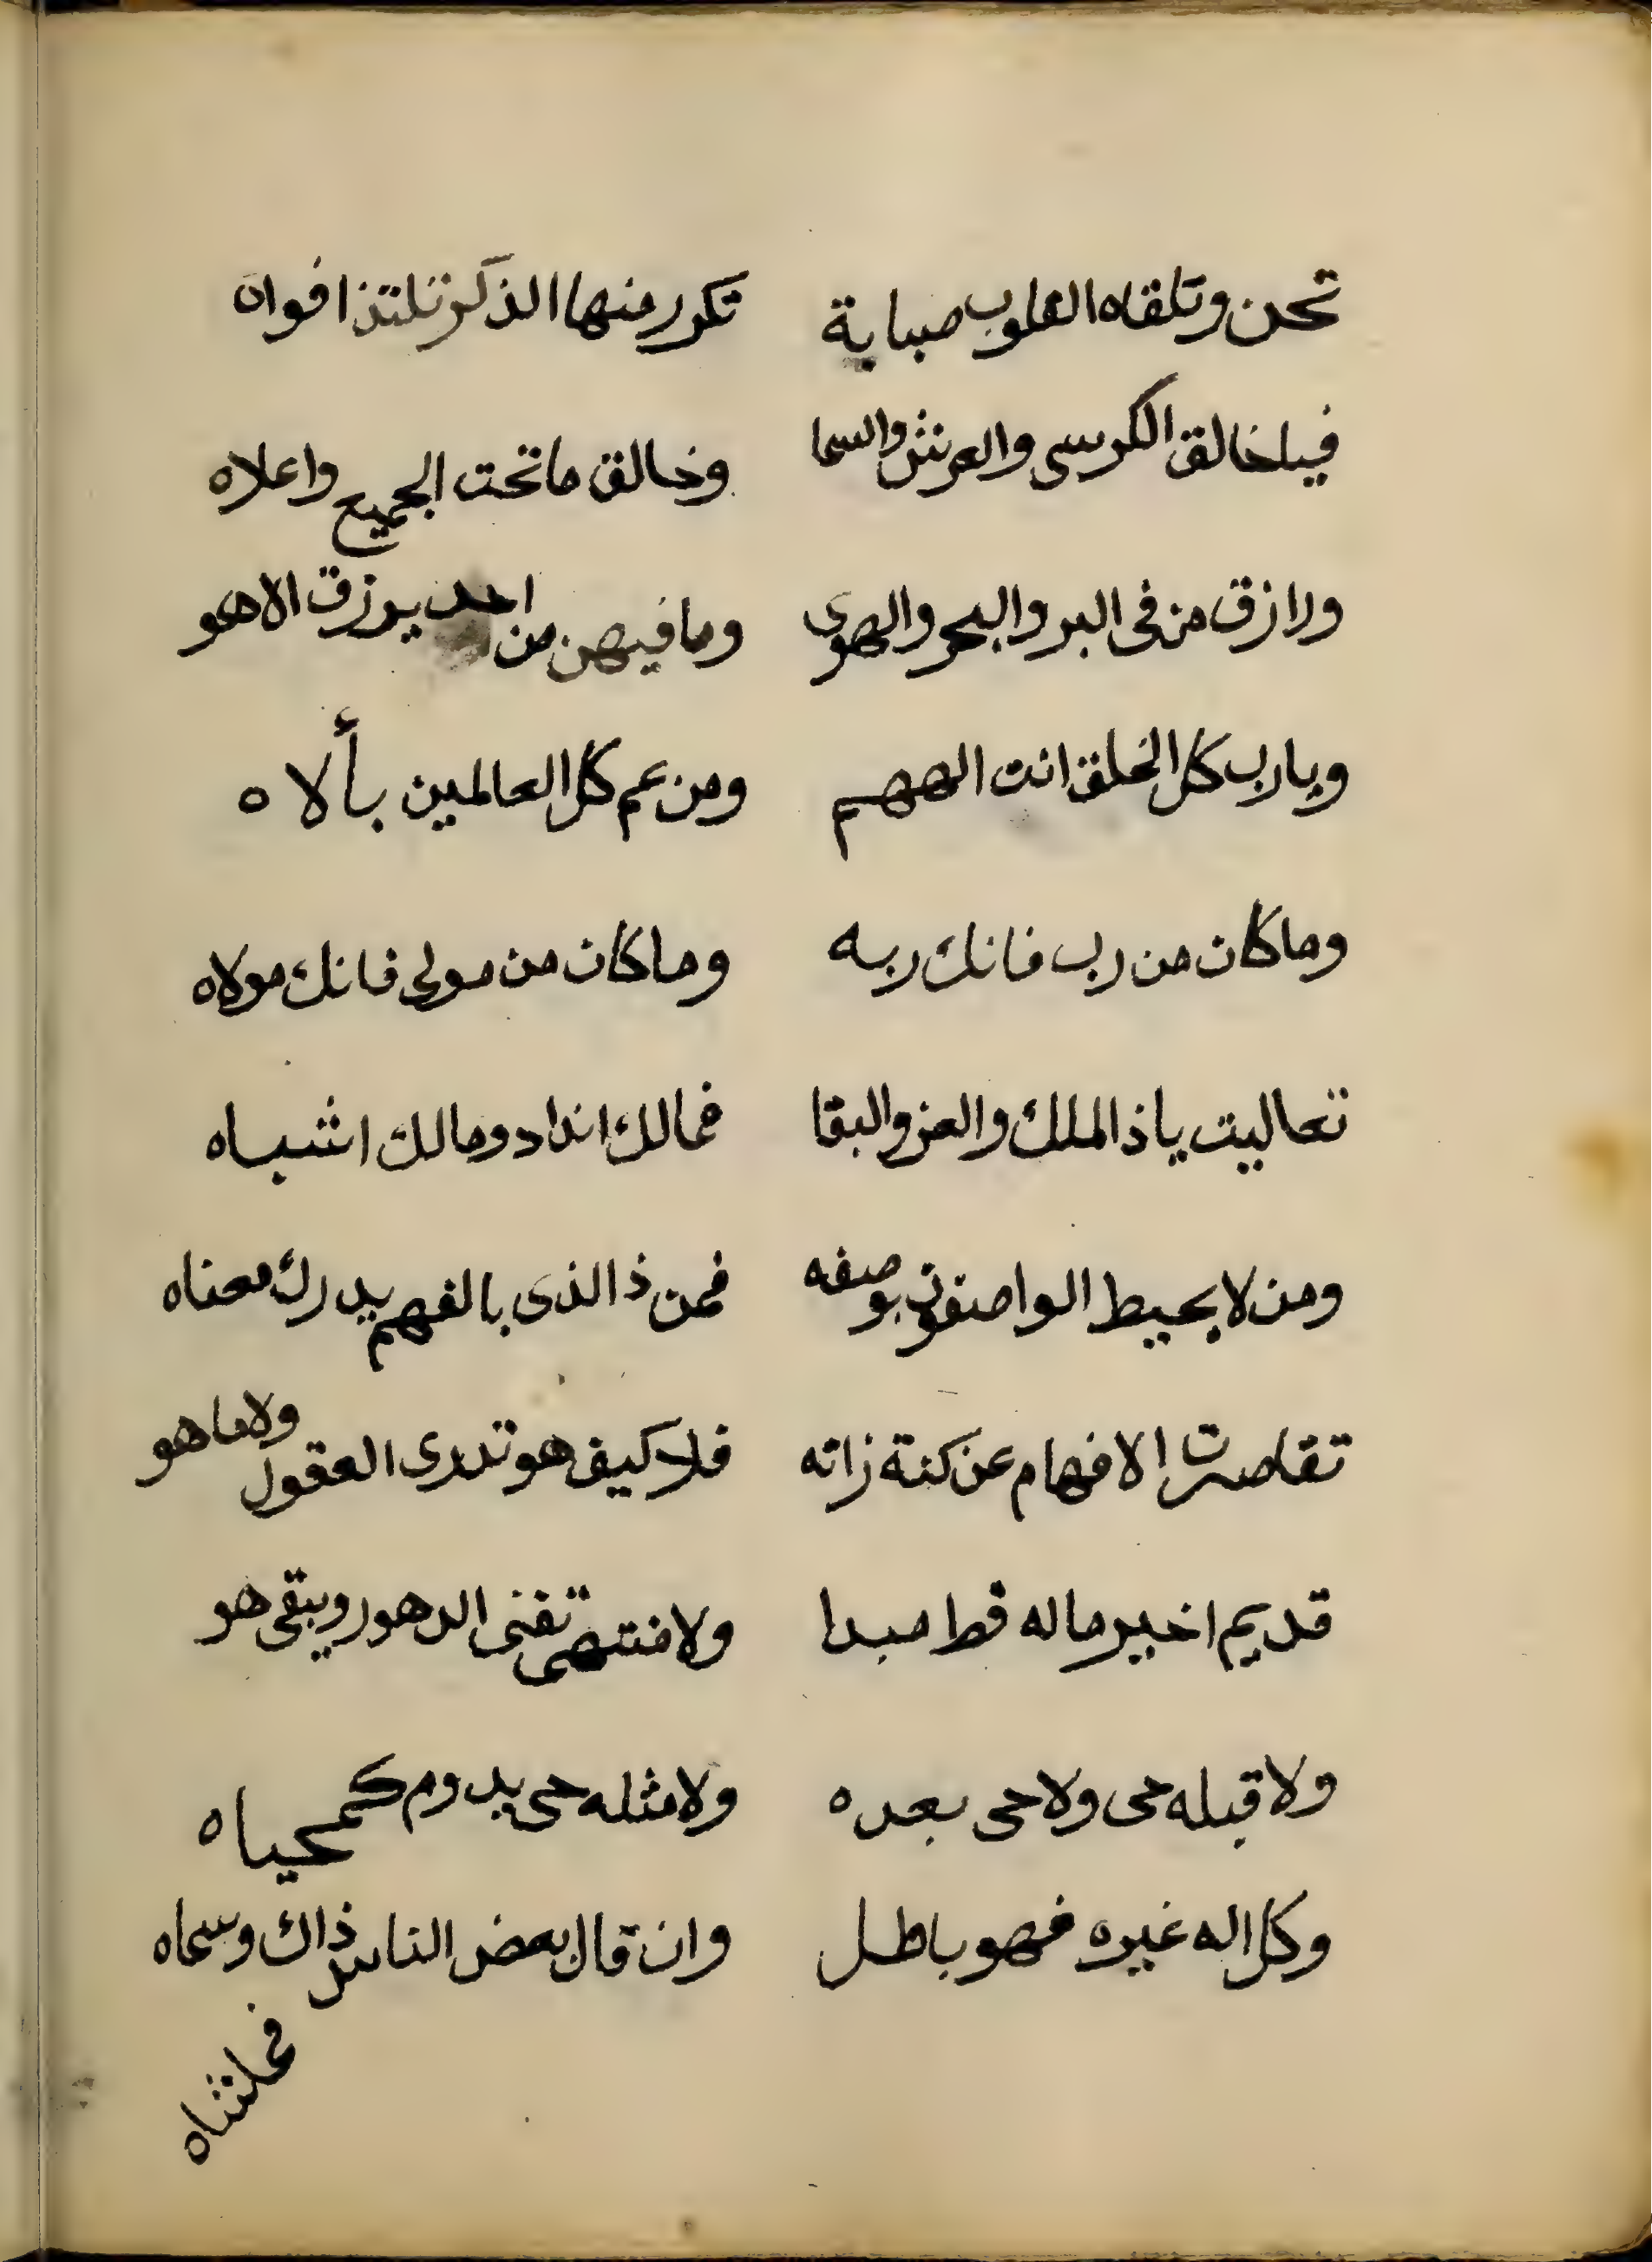 تحن وتلقاه القلوب صبابة تكرر منها الذكر تلتذ افواه
فيا خالق الكرسى والعرش والسما وخالق ما تحت الجميع واعلاه
ورازق من فى البر والبحر والهوى وما فيهن من احد يرزق الا هو
ويا رب كل الخلق انت الههم ومن عم كل العالمين بألاه
وما كان من رب فانك ربه وما كان من مولى فانك مولاه
تعاليت يا ذا الملك والعز والبقا فمالك انداد ومالك اشباه
ومن لا يحيط الواصفون بوصفه فمن ذا الذى بالفهم يدرك معناه
تقاصرت الافهام عن كنة زاته فلا كيف هو تدرى العقول ولا ما هو
قديم اخير ماله قط مبدا ولا منتهى تفنى الدهور ويبقى هو
ولا قبله حى ولا حى بعده ولا مثله حى يدوم كمحياه
وكل اله غيره فهو باطل وان قال بعض الناس ذاك وسماه
فحلشاه